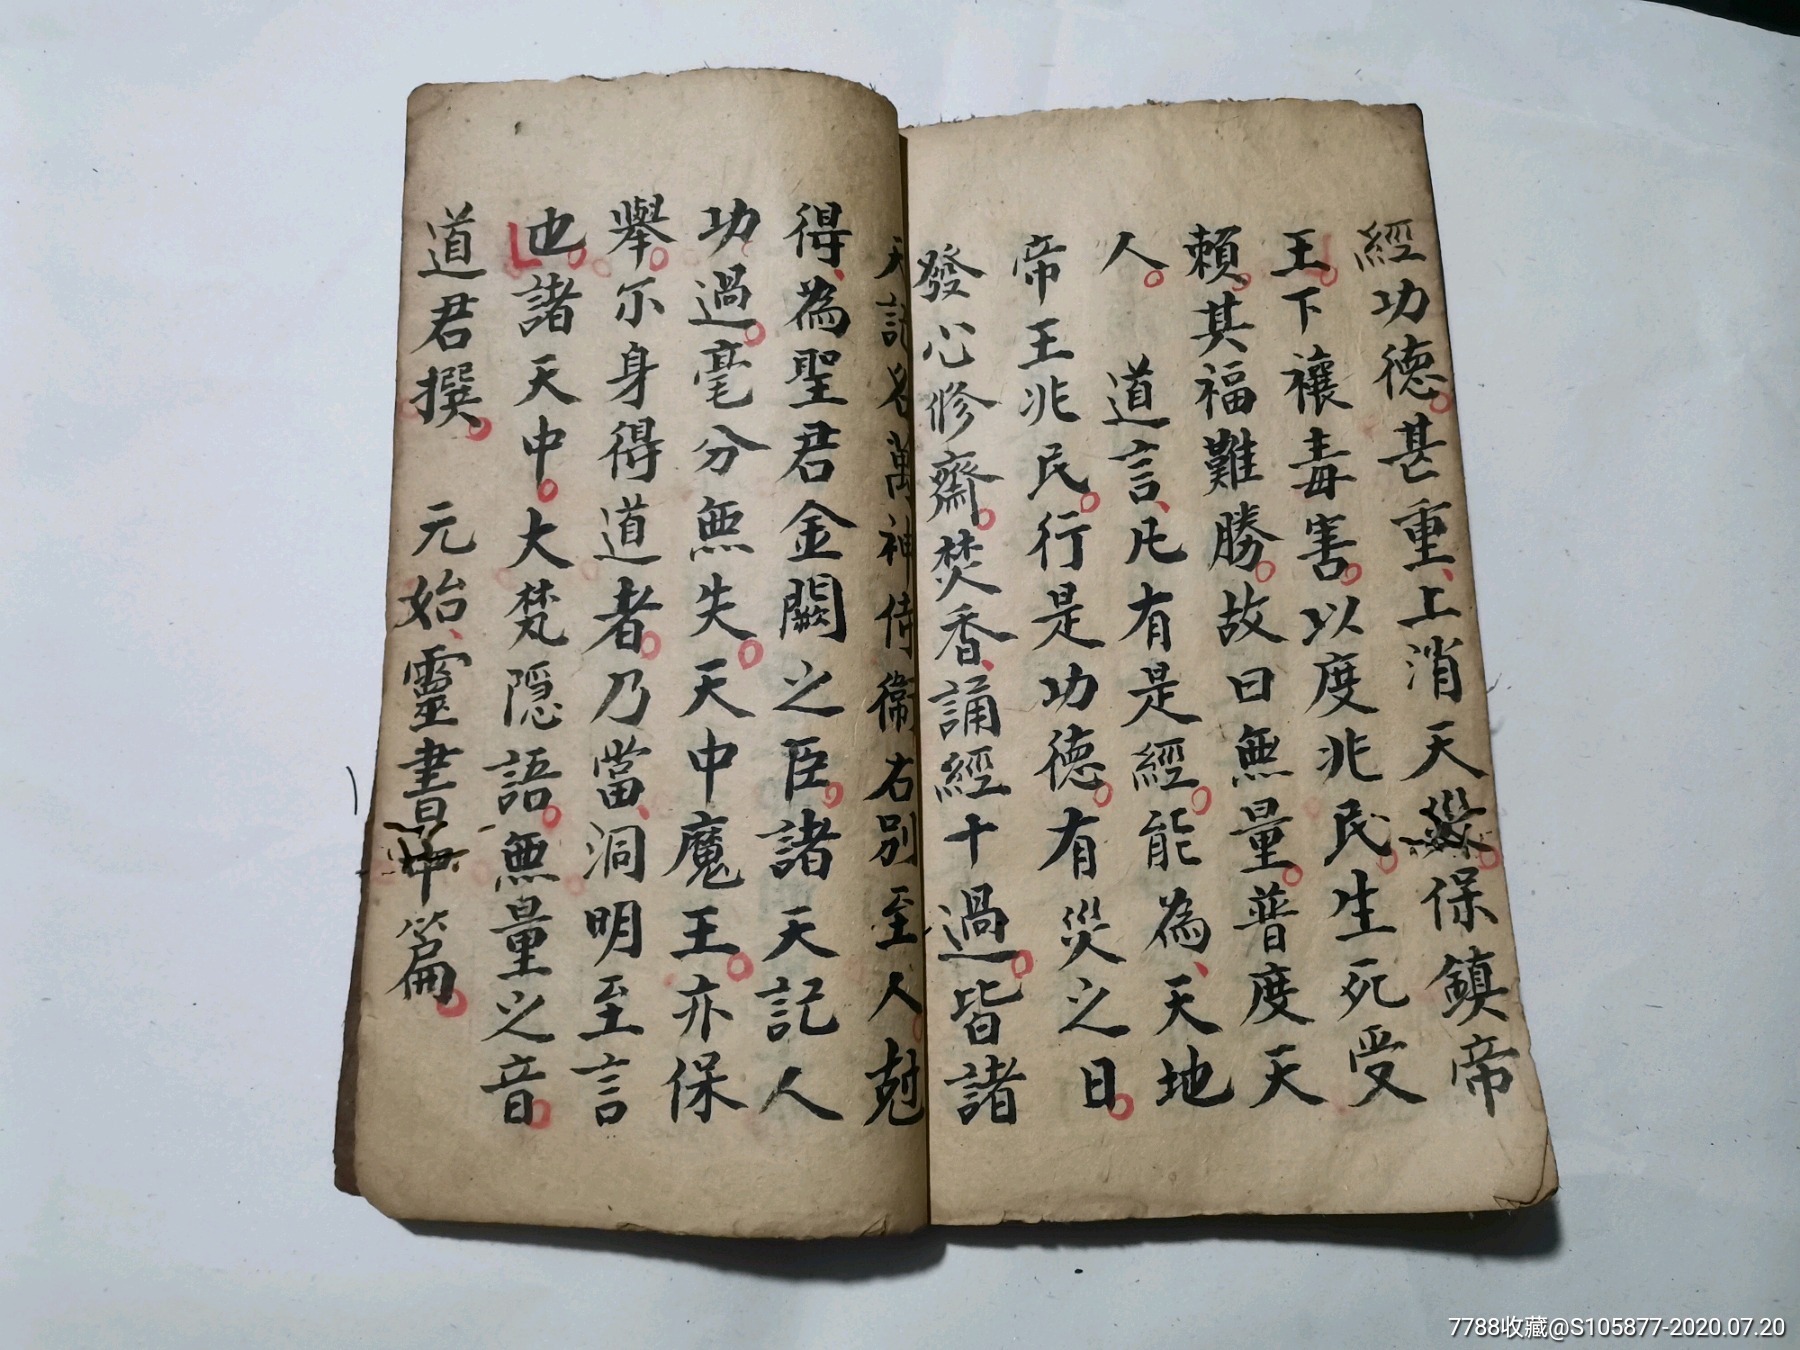 經功德甚重上消天災保鎮帝
王下禳毒害以度兆民生死受
賴其福難勝故曰無量普度天
人 道言凡有是經能為天地
帝王兆民行是功德有災之日
發心修齋焚香誦經十過皆諸
天記名萬神侍衛右別至人尅
得為聖君金闕之臣諸天記人
功過毫分無失天中魔王亦保
舉尔身得道者乃當洞明至言
也諸天中大梵隠語無量之音
道君撰 元始靈書中篇
7788收藏@S105877-2020.07.20